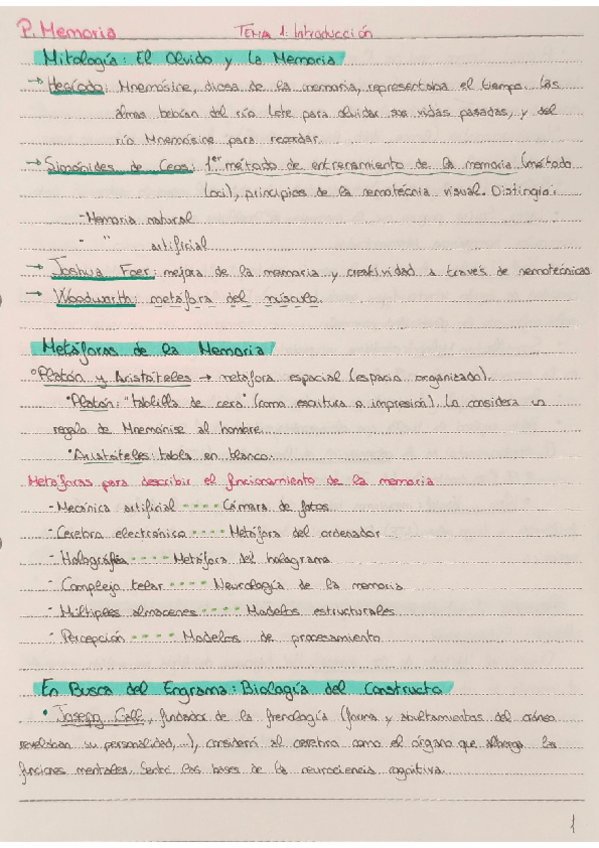 P. Memoria
TEMA 1: Introducción
Mitología: El Olvido y la Memoria
→ Hesíodo: Mnemósine, diosa de la memoria, representaba el tiempo. Las
almas bebían del río Lete para olvidar sus vidas pasadas, y del
río Mnemósine para recordar.
→ Simónides de Ceos: 1er método de entrenamiento de la memoria (método
loci), principios de la nemotécnia visual. Distingia:
- Memoria natural
- " artificial
→ Joshua Foer: mejora de la memoria y creatividad a través de nemotécnicas
→ Woodworth: metáfora del músculo.
Metáforas de la Memoria
° Platón y Aristóteles → metáfora espacial (espacio organizado).
• Platón: "tablilla de cera" (como escritura o impresión). Lo considera un
regalo de Mnemónise al hombre.
• Aristóteles: tabla en blanco.
Metáforas para describir el funcionamiento de la memoria
- Mecánica artificial ---- Cámara de fotos
- Cerebro electrónico ---- Metáfora del ordenador
- Holografía ---- Metáfora del holograma
- Complejo telar ---- Neurología de la memoria
- Múltiples almacenes ---- Modelos estructurales
- Percepción ---- Modelos de procesamiento
En Busca del Engrama: Biología del Constructo
• Joseph Gall, fundador de la frenología (forma y abultamientos del cráneo
revelaban su personalidad,...), consideró al cerebro como el órgano que alberga las
funciones mentales. Sentó las bases de la neurociencia cognitiva.
1